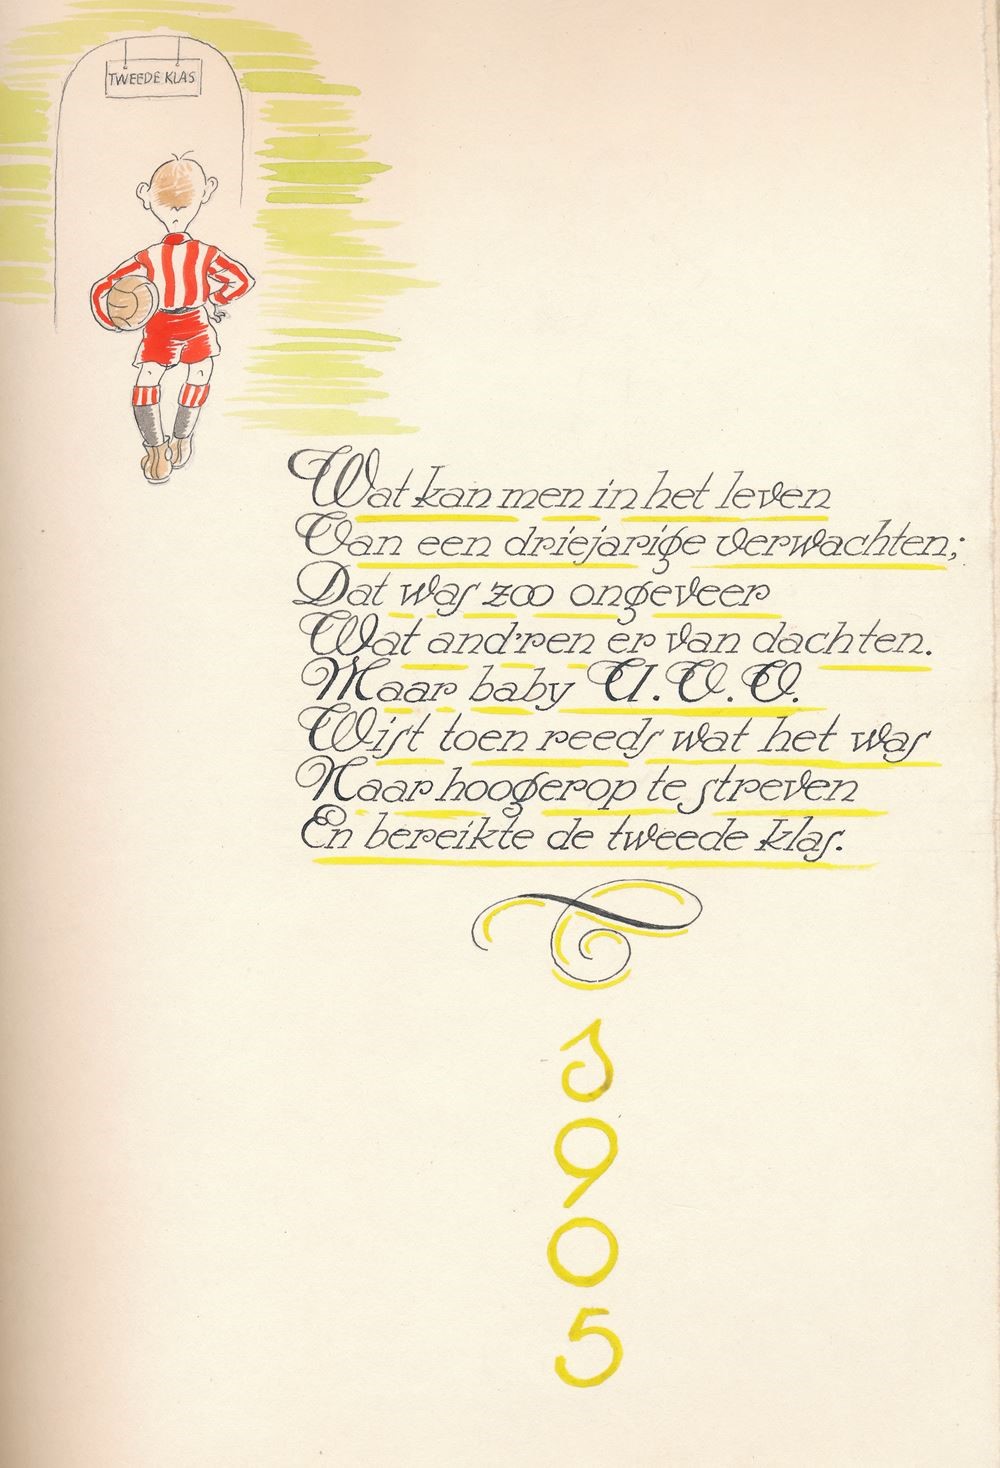 TWEEDE KLAS
Wat kan men in het leven
Van een driejarige verwachten;
Dat was zoo ongeveer
Wat and'ren er van dachten.
Maar baby U.V.V.
Wist toen reeds wat het was
Naar hoogerop te streven
En bereikte de tweede klas.
1
9
0
5